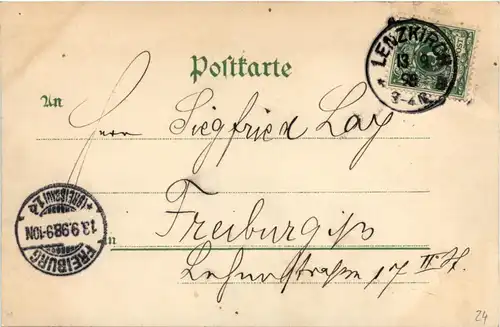 Postkarte
LENZKIRCH
13 9
98
3-4N.
An
Herrn Siegfried Lay
Freiburg i/B
in
FREIBURG
13.9.98.9-10N
(BREISGAU)
17 II. St.
24